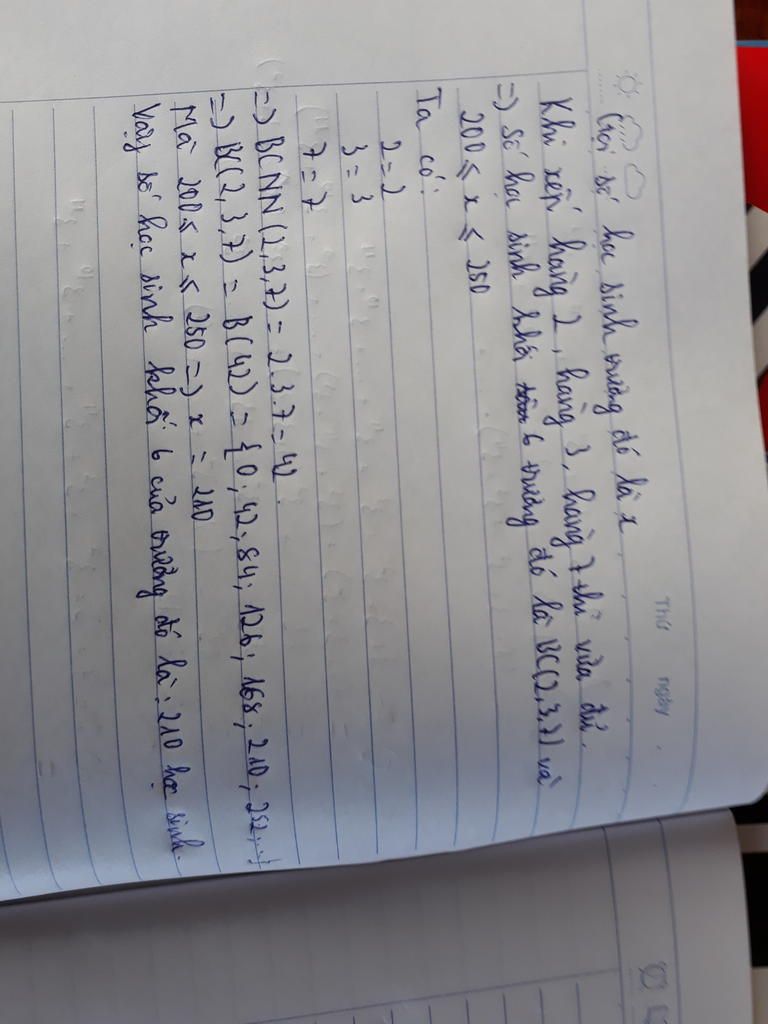 Thứ ngày
Gọi số học sinh trường đó là x
Khi xếp hàng 2, hàng 3, hàng 7 thì vừa đủ.
=) Số học sinh khối 6 trường đó là BC(2,3,7) và
200 ⩽ x ⩽ 250
Ta có:
2 = 2
3 = 3
7 = 7
=) BCNN(2,3,7) = 2.3.7 = 42.
=) BC(2,3,7) = B(42) = {0; 42; 84; 126; 168; 210; 252;..}
Mà 200 ⩽ x ⩽ 250 =) x = 210
Vậy số học sinh khối 6 của trường đó là: 210 học sinh.